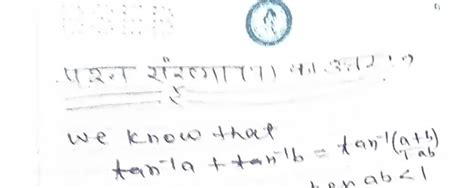 प्रश्न संख्या का उत्तर
we know that
tan⁻¹a + tan⁻¹b = tan⁻¹(a+b/1-ab)
ab<1